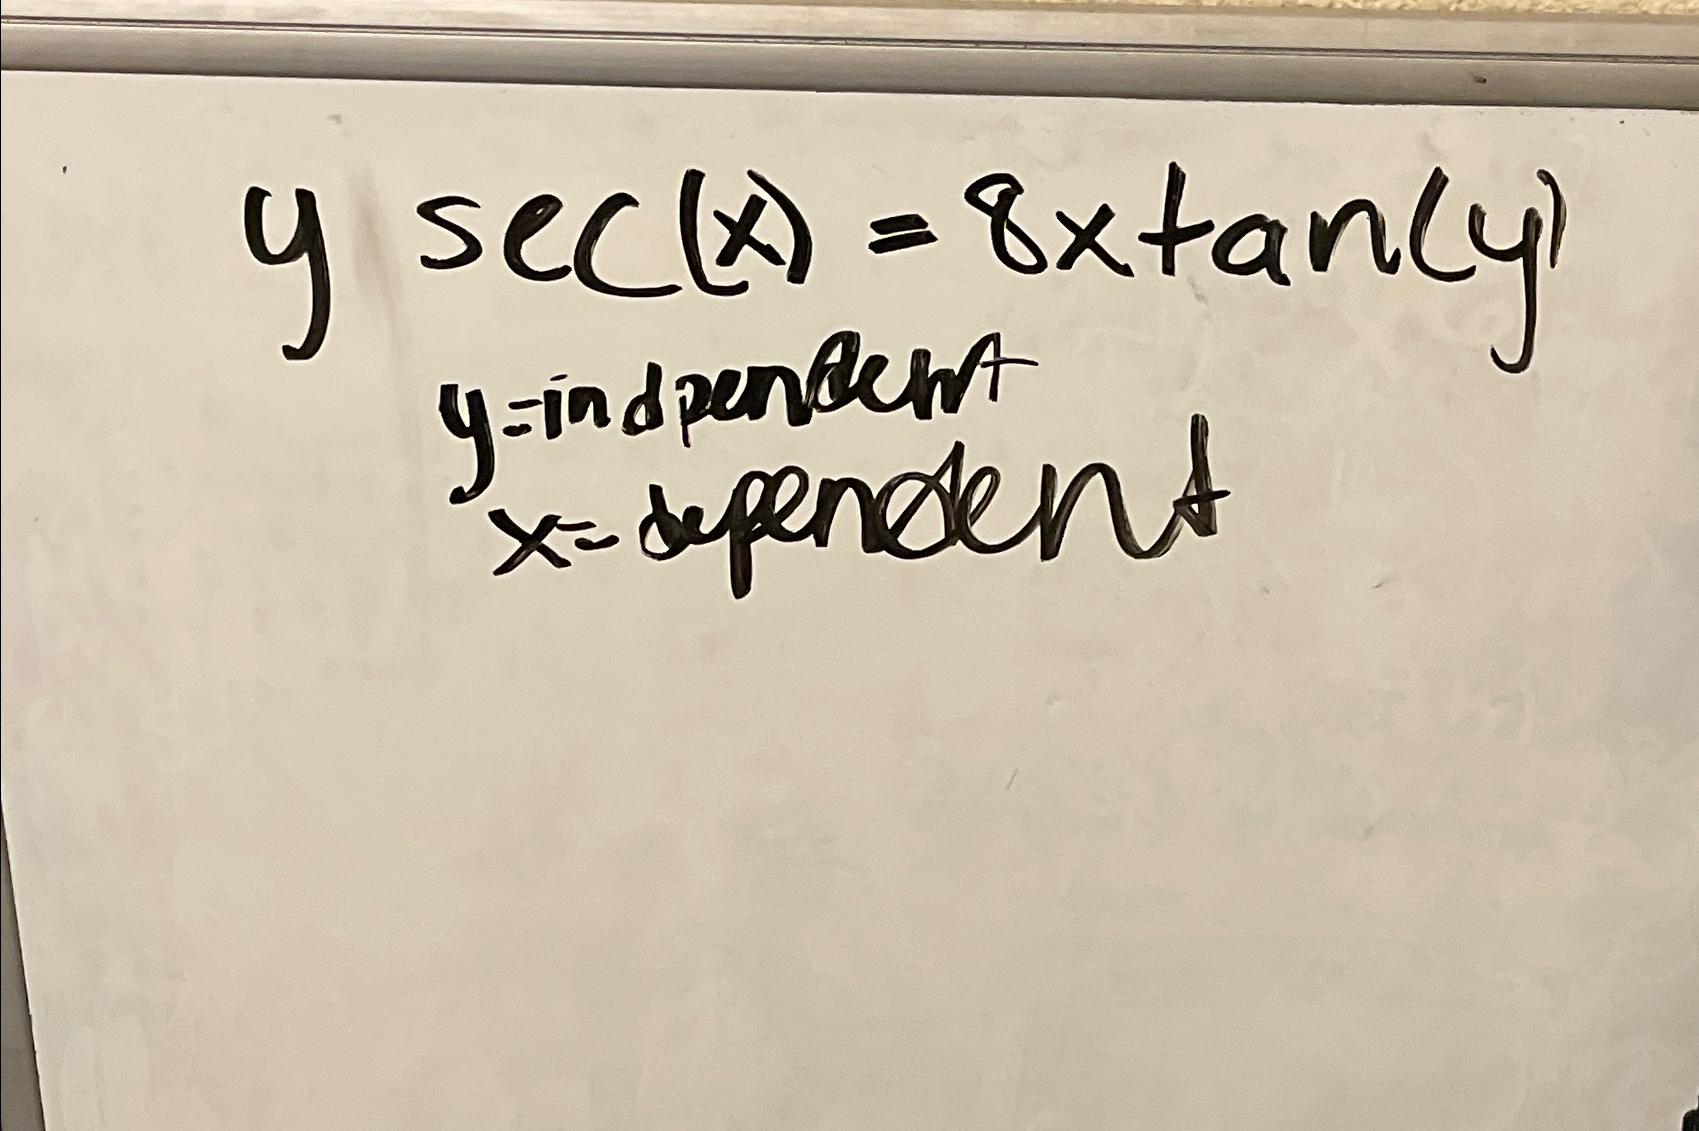 y sec(x) = 8xtan(y)
y=indpendent
x=dependent